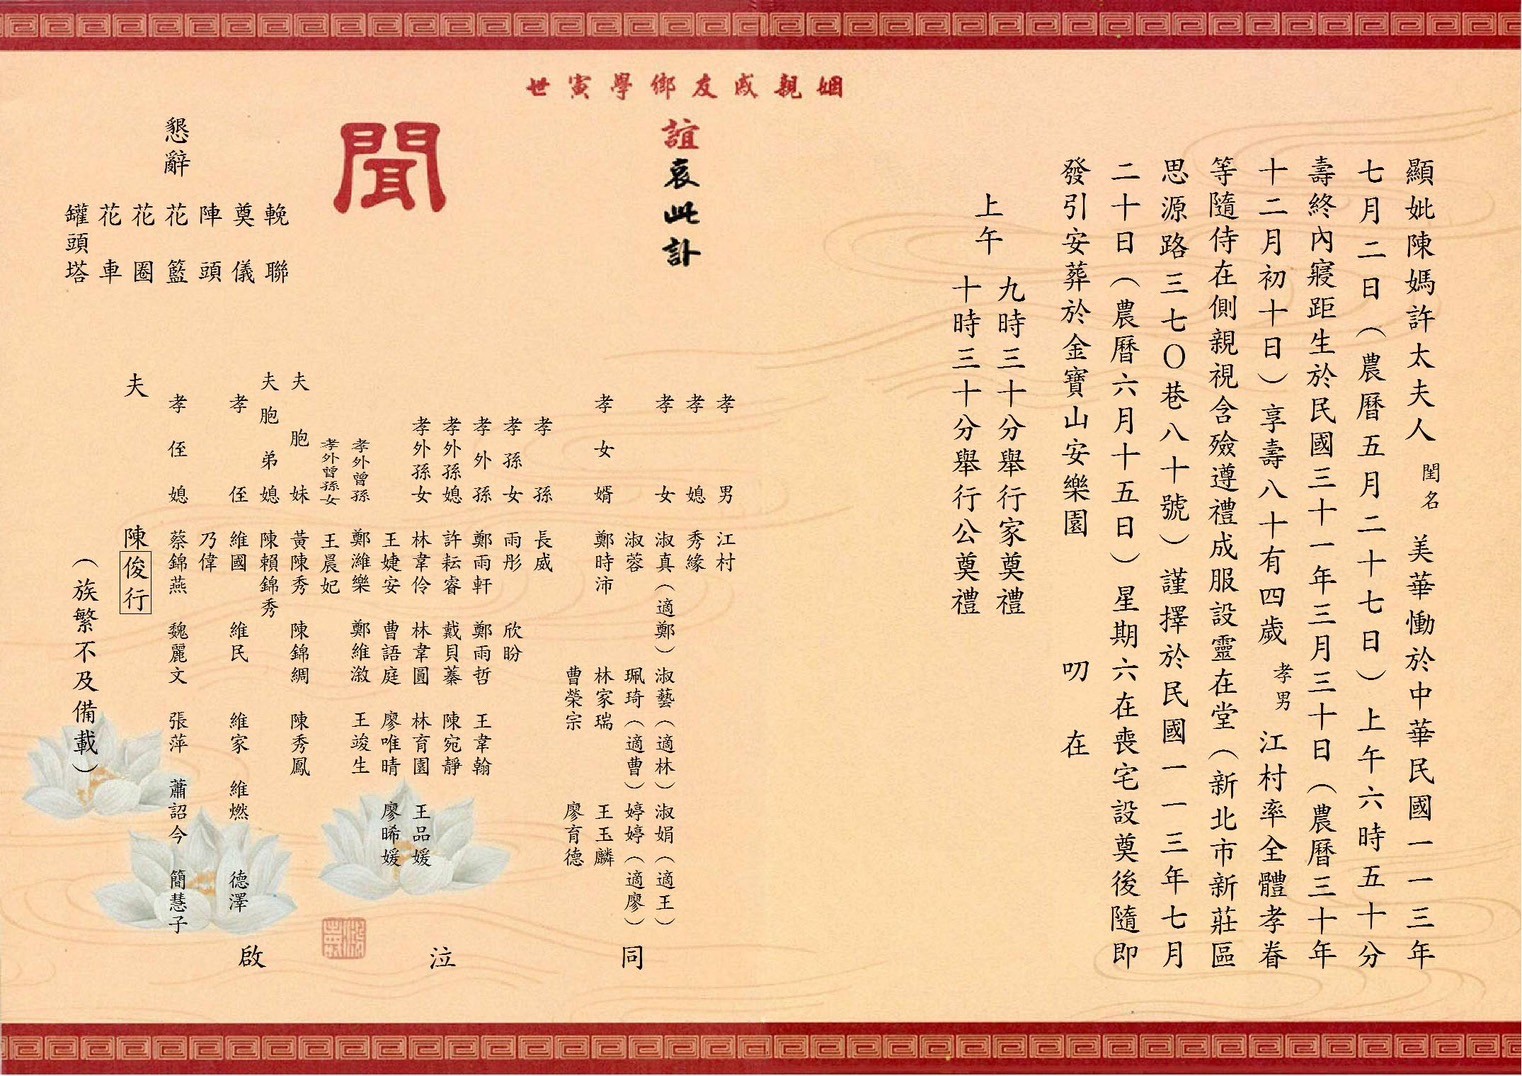 顯妣陳媽許太夫人 閨名 美華慟於中華民國一一三年
七月二日（農曆五月二十七日）上午六時五十分
壽終內寢距生於民國三十一年三月三十日（農曆三十年
十二月初十日）享壽八十有四歲 孝男 江村率全體孝眷
等隨侍在側親視含殮遵禮成服設靈在堂（新北市新莊區
思源路三七〇巷八十號）謹擇於民國一一三年七月
二十日（農曆六月十五日）星期六在喪宅設奠後隨即
發引安葬於金寶山安樂園 叨 在
上午
九時三十分舉行家奠禮
十時三十分舉行公奠禮
姻親戚友鄉學寅世
誼
哀此訃
聞
孝男 江村
孝媳 秀緣
孝女 淑真（適鄭）淑藝（適林）淑娟（適王）
淑蓉 珮琦（適曹）婷婷（適廖）
孝女婿 鄭時沛 林家瑞 王玉麟
曹榮宗 廖育德
孝孫 長威
孝孫女 雨彤 欣盼
孝外孫 鄭雨軒 鄭雨哲 王韋翰
孝外孫媳 許耘睿 戴貝蓁 陳宛靜
孝外孫女 林韋伶 林韋圓 林育園 王品媛
王婕安 曹語庭 廖唯晴 廖晞媛
孝外曾孫 鄭濰樂 鄭維漵 王竣生
孝外曾孫女 王晨妃
夫胞妹 黃陳秀 陳錦綢 陳秀鳳
夫胞弟媳 陳賴錦秀
孝侄 維國 維民 維家 維燃 德澤
乃偉
孝侄媳 蔡錦燕 魏麗文 張萍 蕭詔今 簡慧子
夫 陳俊行
（族繁不及備載）
同 泣 啟
懇辭
輓聯
奠儀
陣頭
花籃
花圈
花車
罐頭塔